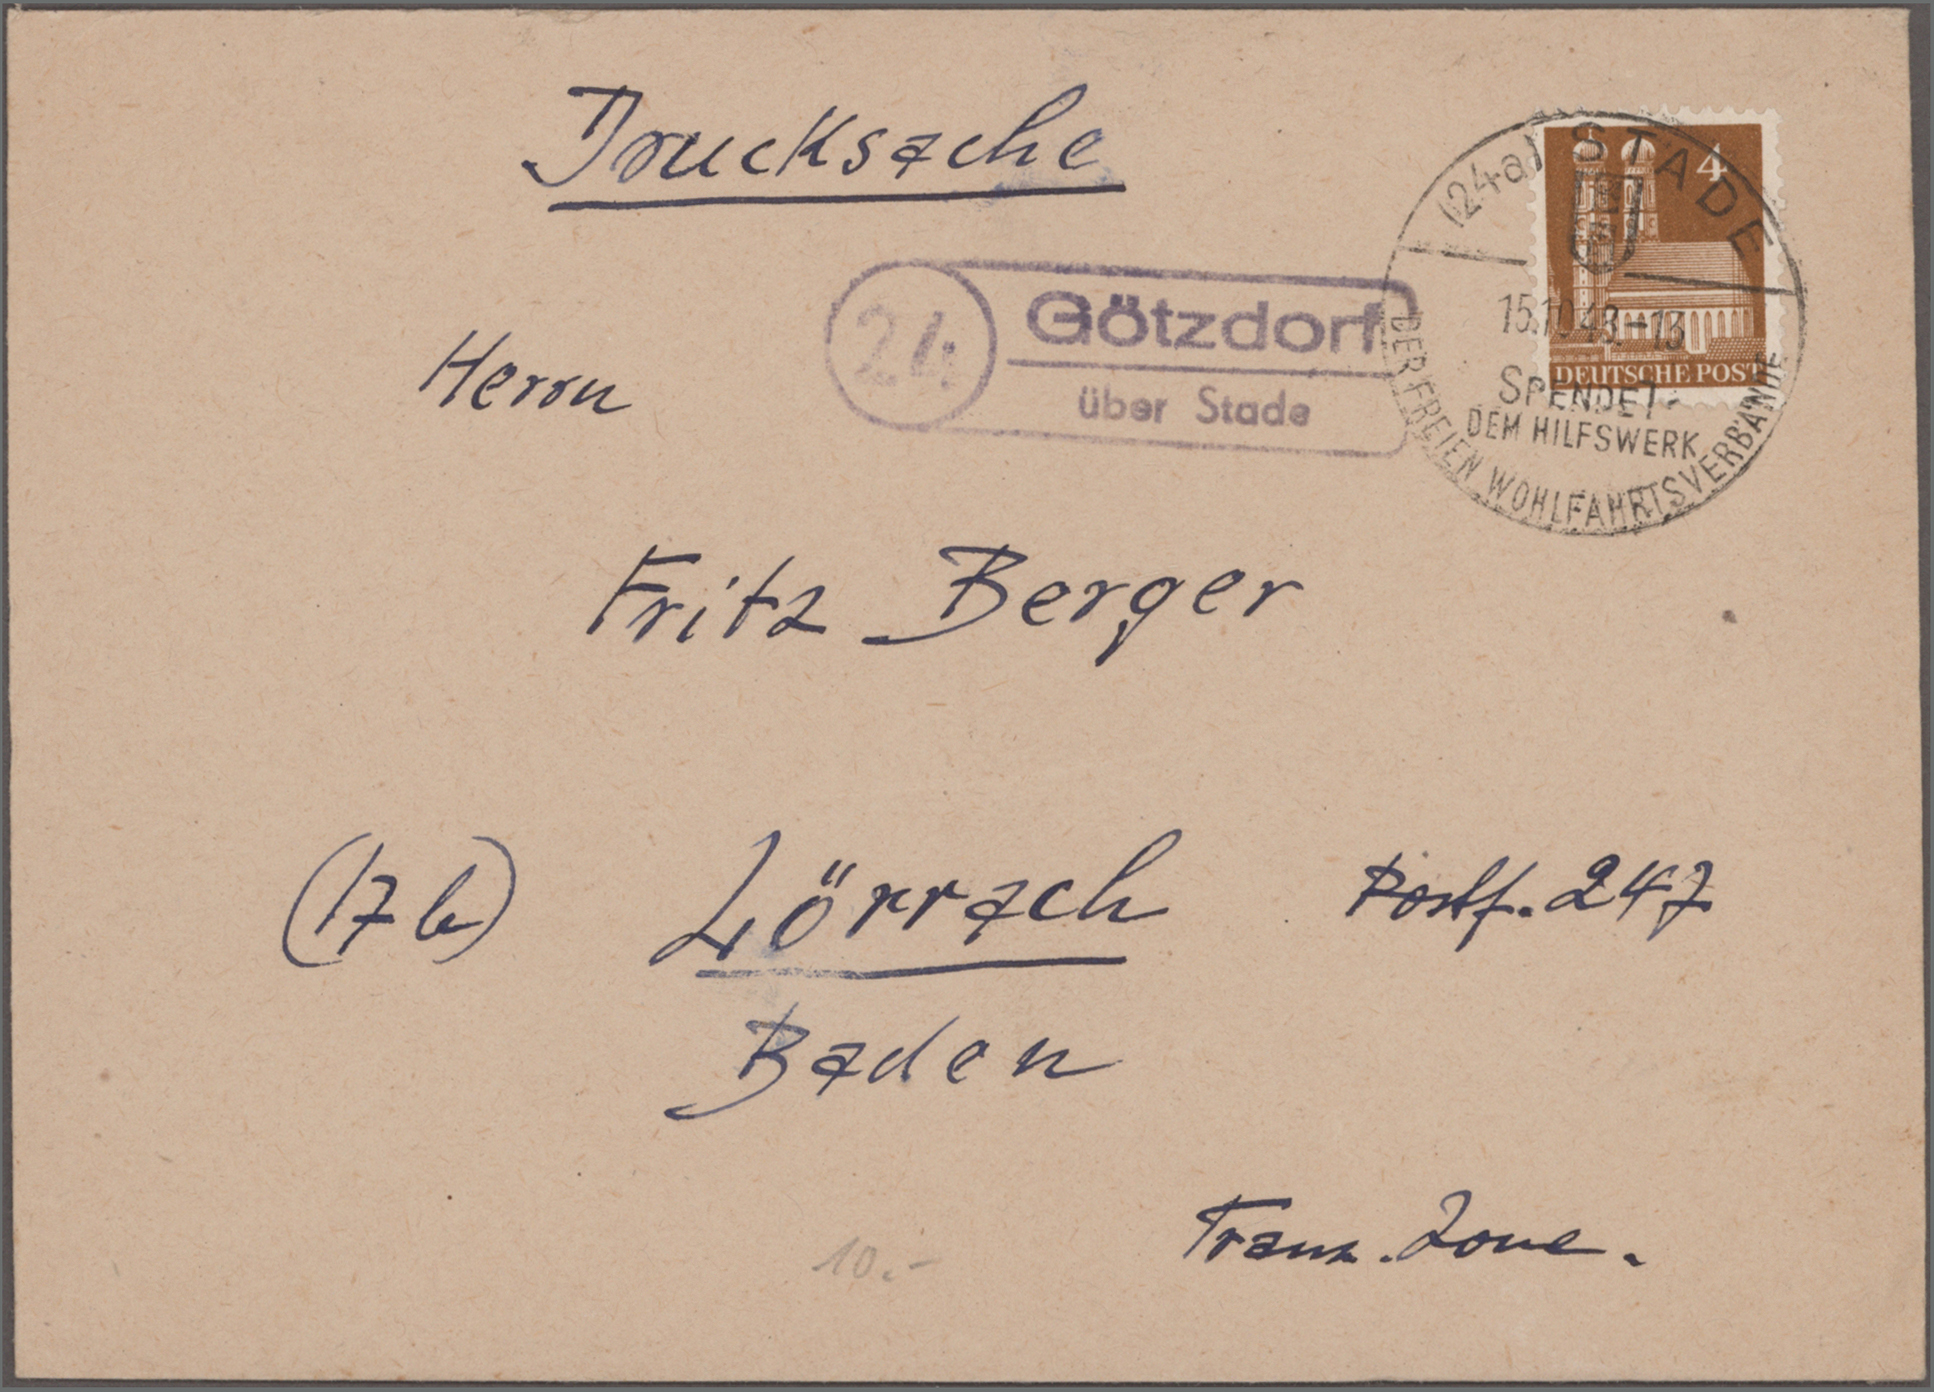 Drucksache
(24a) STADE
4
15.11.48.-13
DEUTSCHE POST
SPENDET
DEM HILFSWERK
DER FREIEN WOHLFAHRTSVERBÄNDE
24
Götzdorf
über Stade
Herrn
Fritz Berger
(17b) Lörrach Postf. 247
Baden
Franz. Zone.
10.-